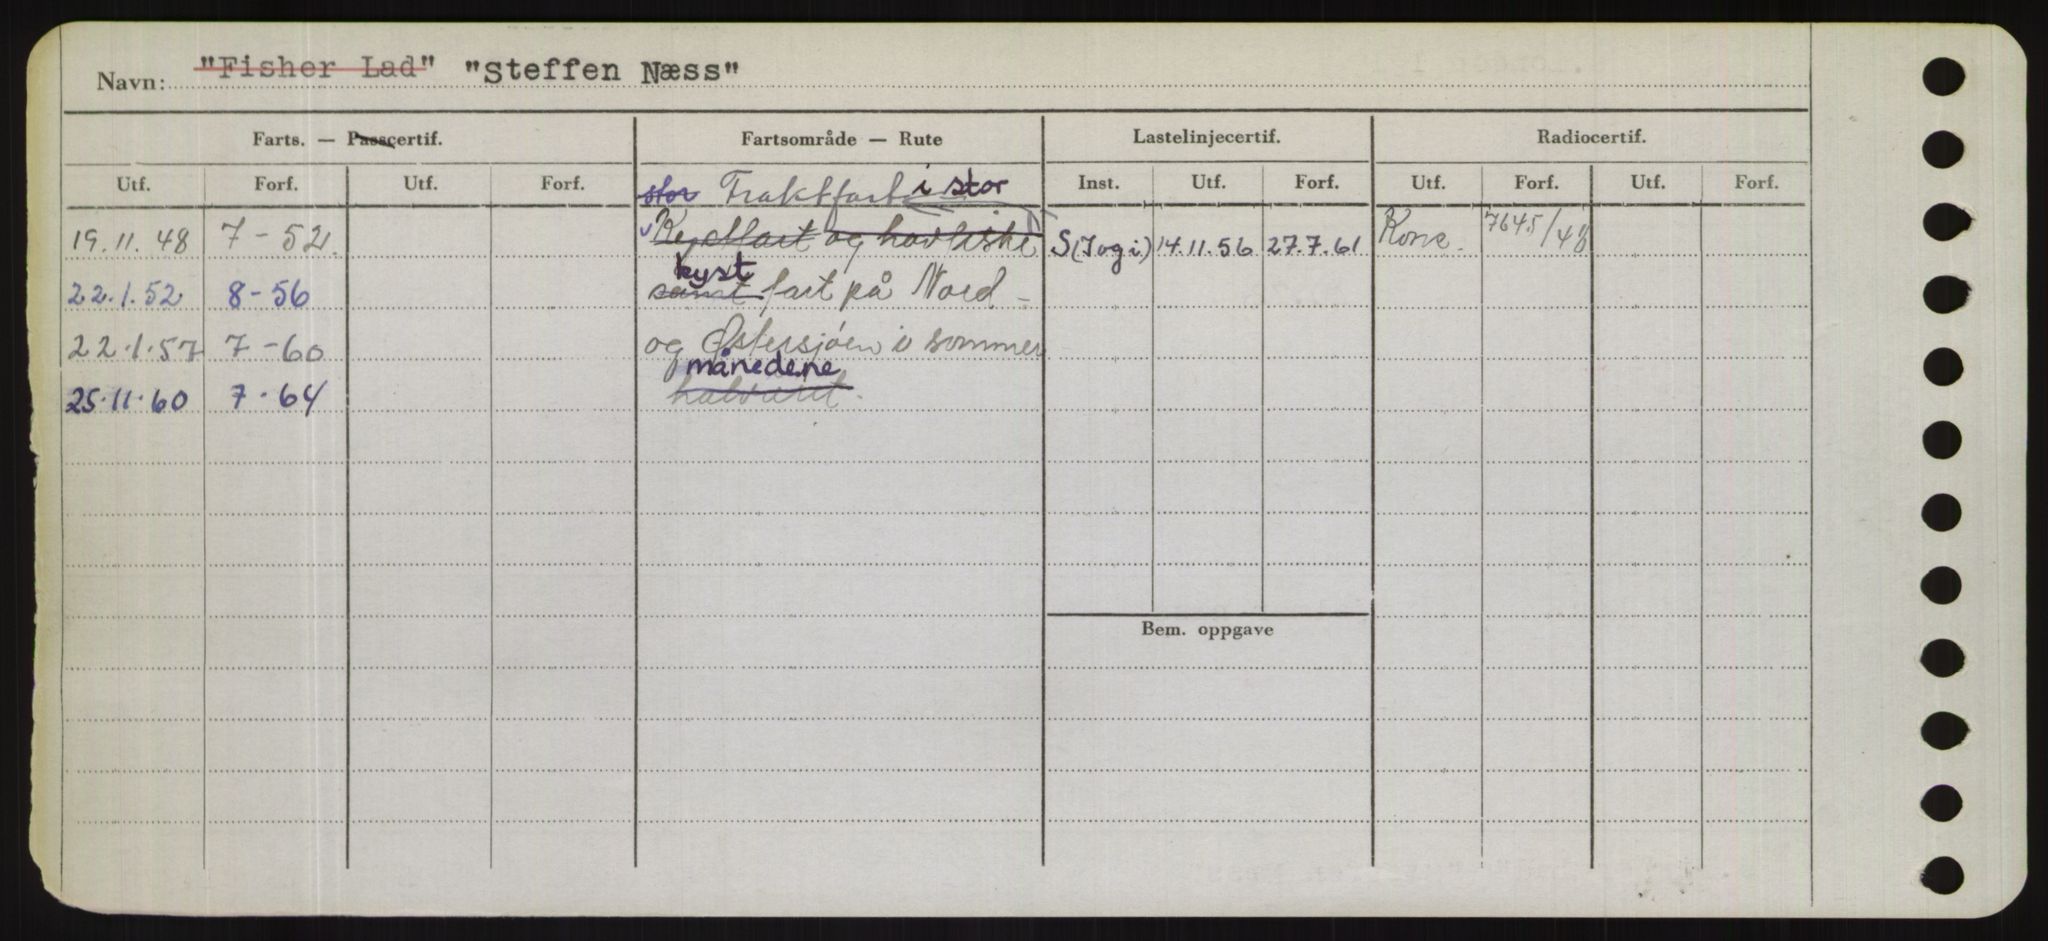 Navn: "Fisher Lad" "Steffen Næss"
Farts. — Passcertif. Fartsområde — Rute Lastelinjecertif. Radiocertif.
Utf. Forf. Utf. Forf. stor Fraktfart i stor Inst. Utf. Forf. Utf. Forf. Utf. Forf.
19.11.48 7-52. Kystfart og havfiske S(Jogi) 14.11.56 27.7.61 Konc. 7645/48
kyst
22.1.52 8-56 samt fart på Nord-
22.1.57 7-60 og Østersjøen i sommer
månedene
25.11.60 7.64 halvåret.
Bem. oppgave